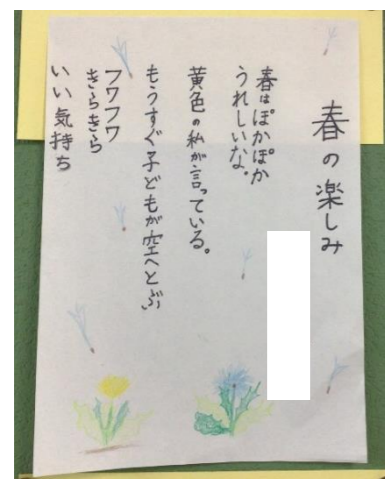 春の楽しみ
春はぽかぽか
うれしいな。
黄色の私が言っている。
もうすぐ子どもが空へとぶ
フワフワ
きらきら
いい気持ち